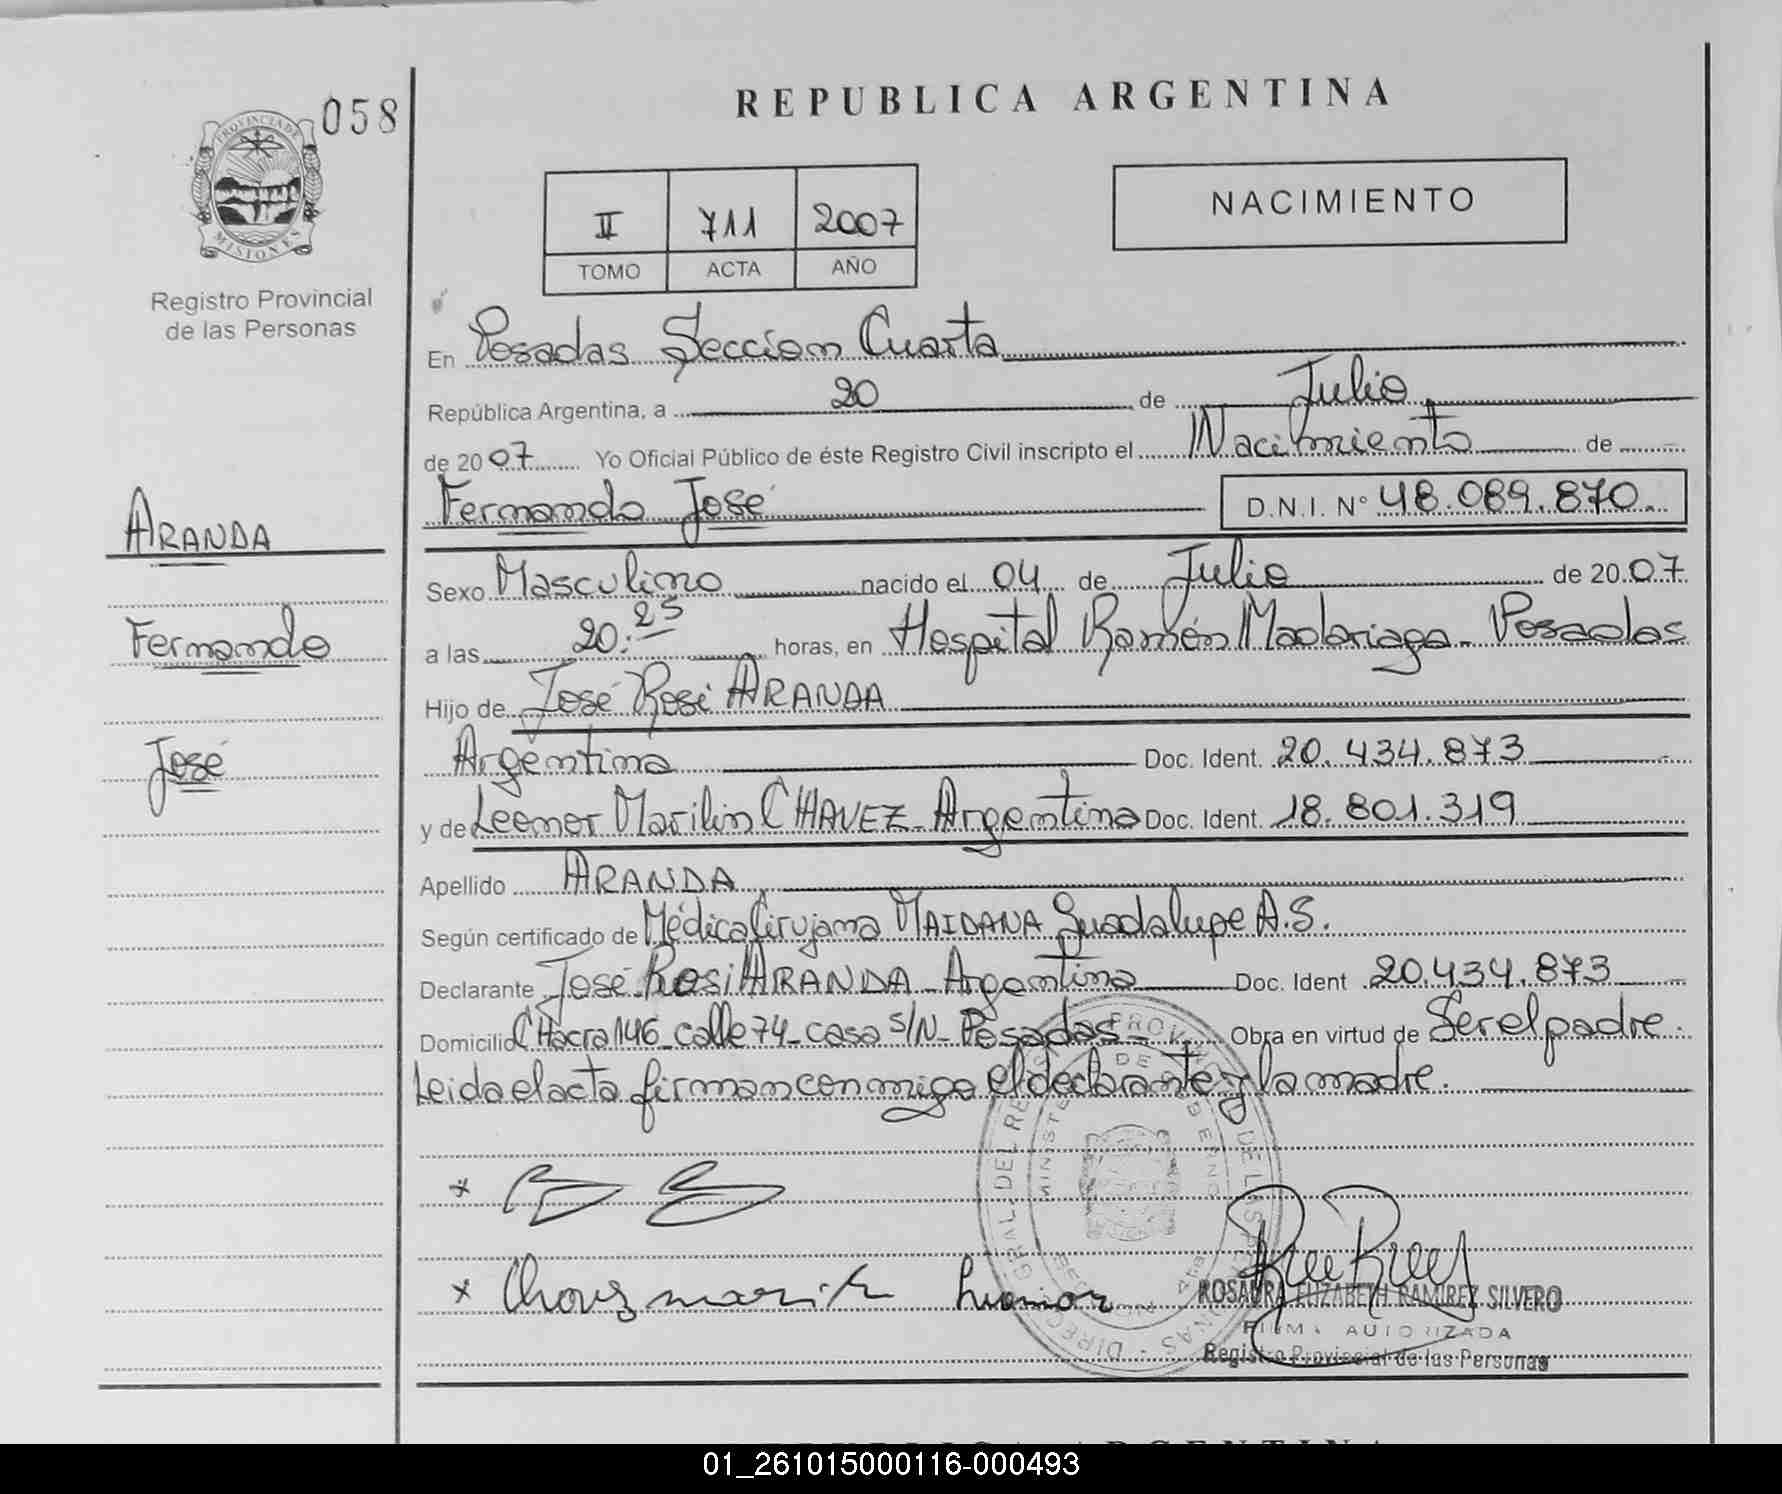 058
PROVINCIA DE
MISIONES
Registro Provincial
de las Personas
ARANDA
Fernando
José
REPUBLICA ARGENTINA
II 711 2007
TOMO ACTA AÑO
NACIMIENTO
En Posadas Sección Cuarta
República Argentina, a 20 de Julio
de 2007 Yo Oficial Público de éste Registro Civil inscripto el Nacimiento de
Fernando José D.N.I. Nº 48.089.870.
Sexo Masculino nacido el 04 de Julio de 2007
a las 20:25 horas, en Hospital Ramón Madariaga - Posadas
Hijo de José Rosi ARANDA
Argentino Doc. Ident. 20.434.873
y de Leonor Marilin CHAVEZ - Argentina Doc. Ident. 18.801.319
Apellido ARANDA
Según certificado de Médica Cirujana MAIDANA Guadalupe A.S.
Declarante José Rosi ARANDA - Argentino Doc. Ident 20.434.873
Domicilio CHacra 146 - calle 74 - casa S/N - Posadas - Obra en virtud de Ser el padre.
Leida el acta firman conmigo el declarante y la madre.
x
x Chavez Leonor
ROSAURA ELIZABETH RAMIREZ SILVERO
FIRMA AUTORIZADA
Registro Provincial de las Personas
01_261015000116-000493